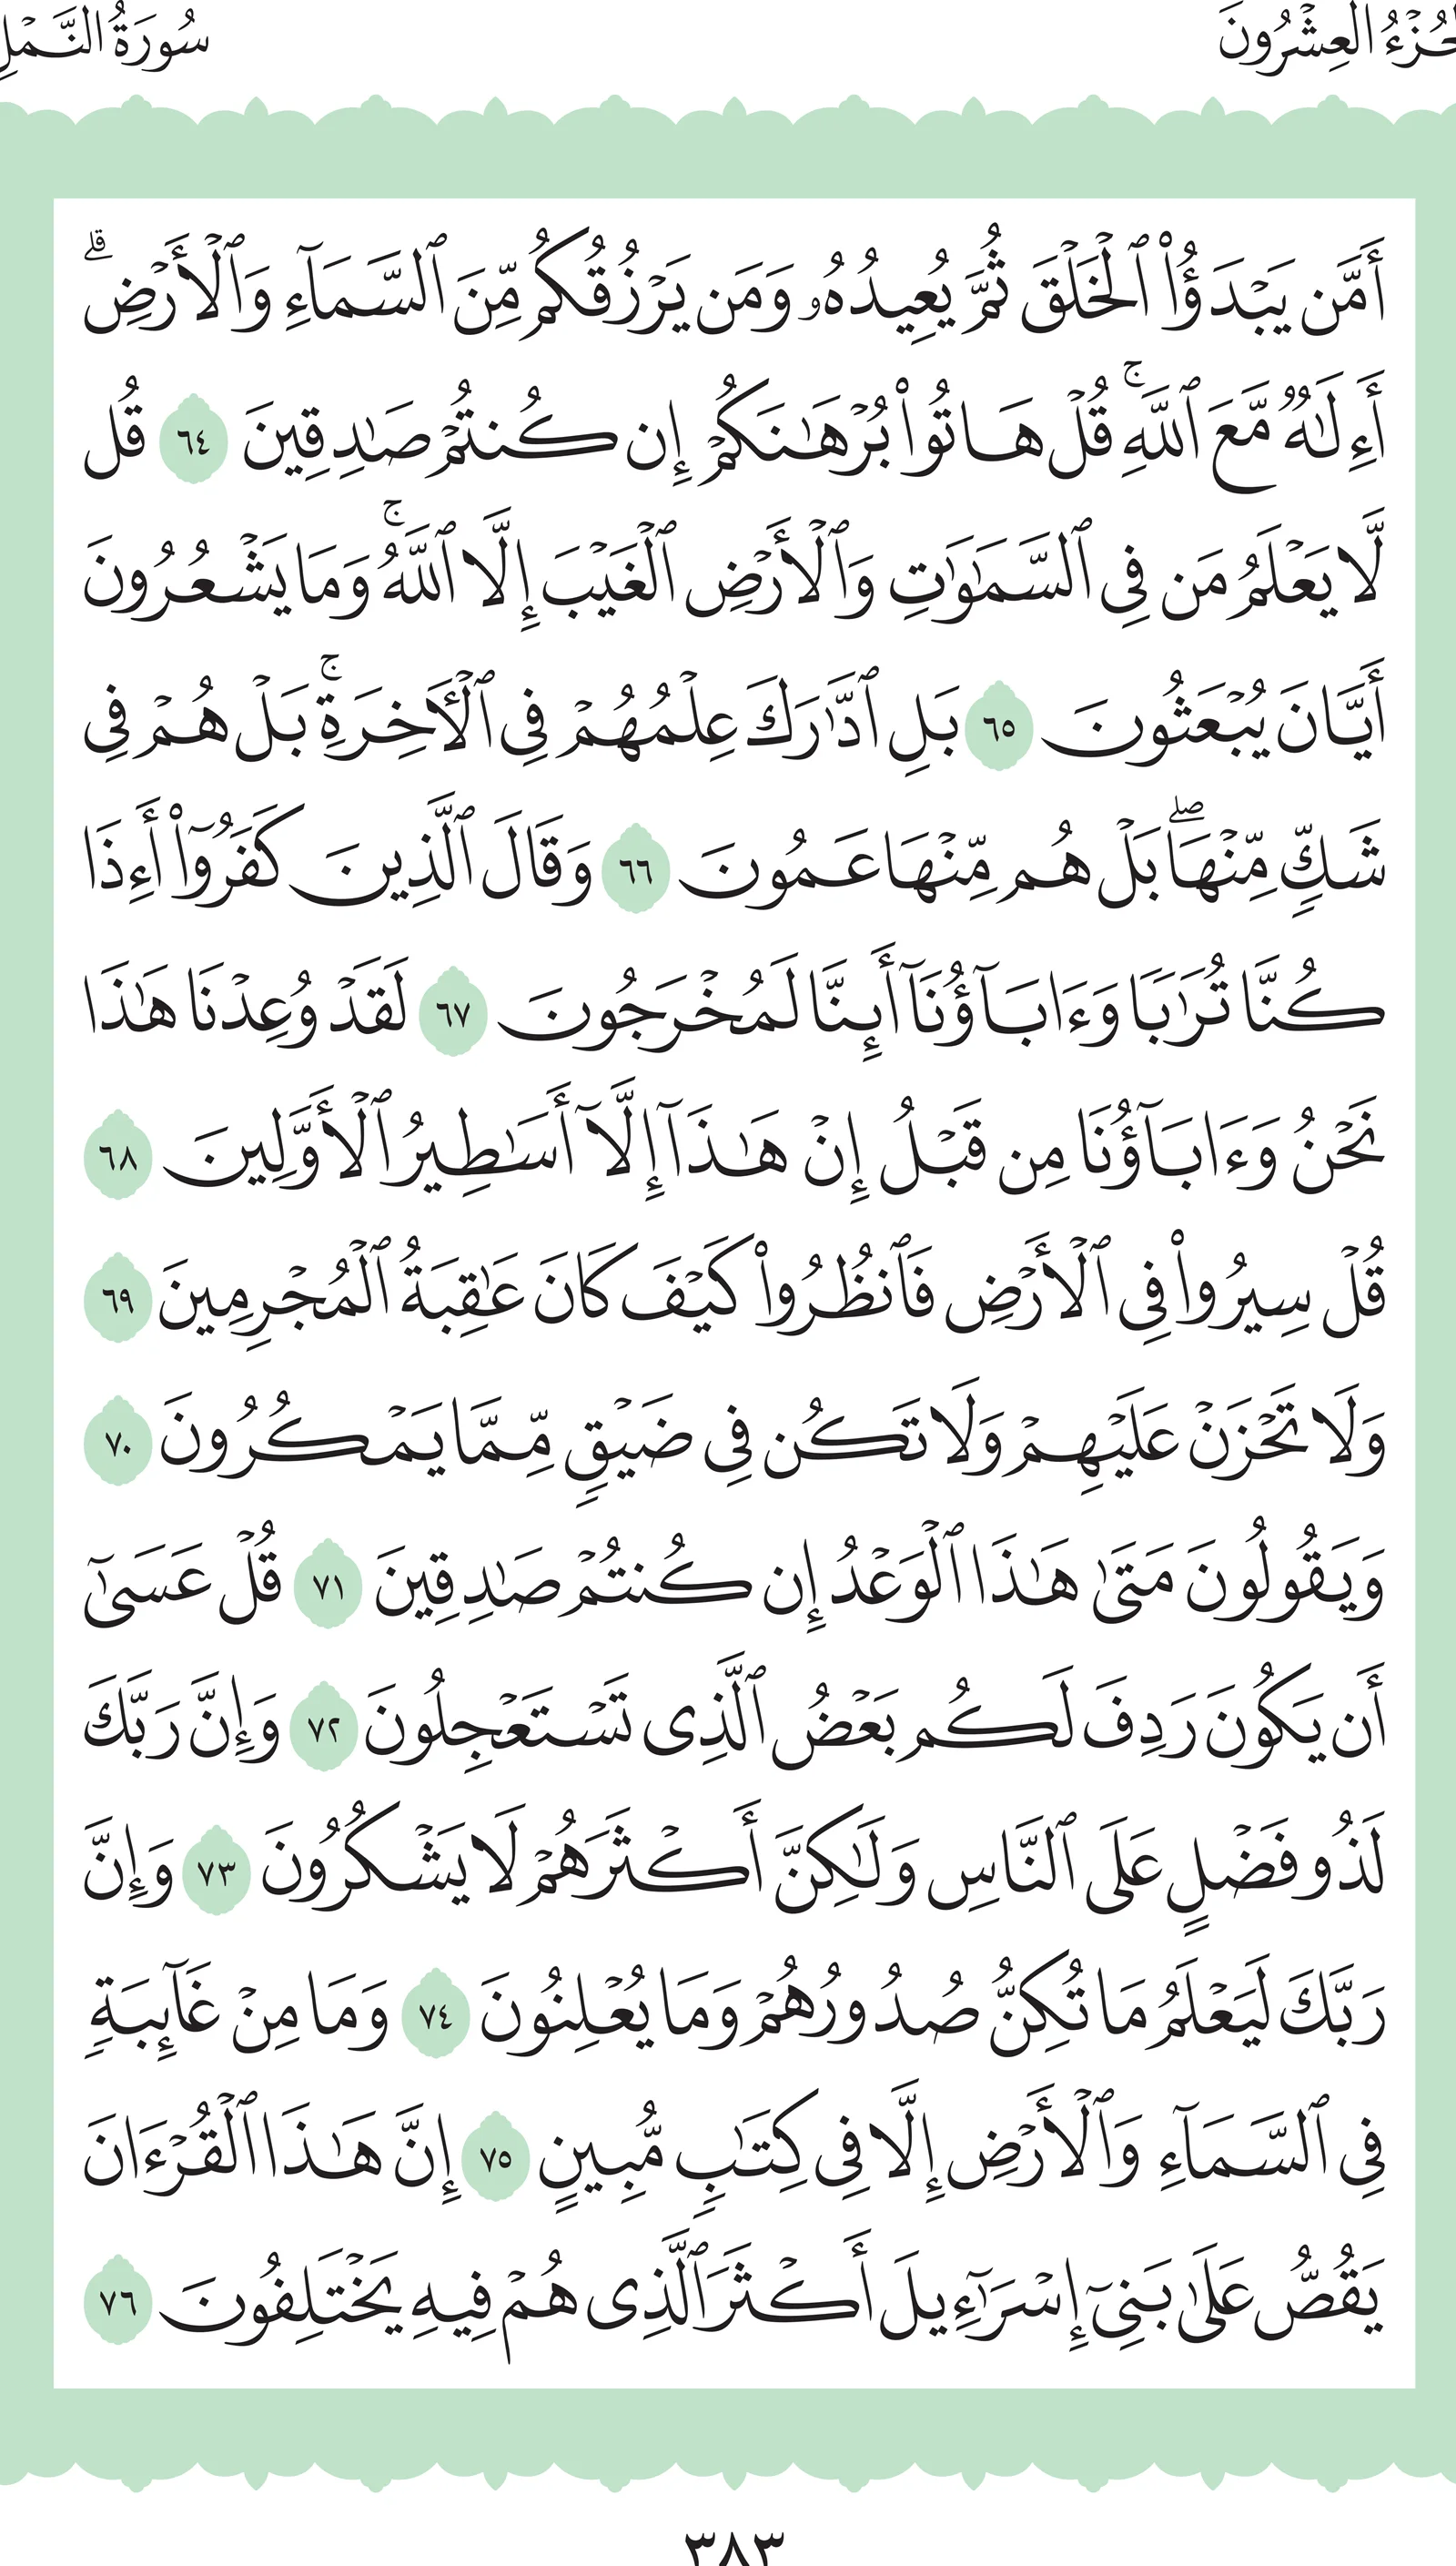 الجُزْءُ الْعِشْرُونَ
سُورَةُ النَّمْلِ
أَمَّن يَبْدَؤُا۟ ٱلْخَلْقَ ثُمَّ يُعِيدُهُۥ وَمَن يَرْزُقُكُم مِّنَ ٱلسَّمَآءِ وَٱلْأَرْضِ ۗ
أَءِلَٰهٌ مَّعَ ٱللَّهِ ۚ قُلْ هَاتُوا۟ بُرْهَٰنَكُمْ إِن كُنتُمْ صَٰدِقِينَ ٦٤ قُل
لَّا يَعْلَمُ مَن فِى ٱلسَّمَٰوَٰتِ وَٱلْأَرْضِ ٱلْغَيْبَ إِلَّا ٱللَّهُ ۚ وَمَا يَشْعُرُونَ
أَيَّانَ يُبْعَثُونَ ٦٥ بَلِ ٱدَّٰرَكَ عِلْمُهُمْ فِى ٱلْءَاخِرَةِ ۚ بَلْ هُمْ فِى
شَكٍّ مِّنْهَا ۖ بَلْ هُم مِّنْهَا عَمُونَ ٦٦ وَقَالَ ٱلَّذِينَ كَفَرُوٓا۟ أَءِذَا
كُنَّا تُرَٰبًا وَءَابَآؤُنَآ أَئِنَّا لَمُخْرَجُونَ ٦٧ لَقَدْ وُعِدْنَا هَٰذَا
نَحْنُ وَءَابَآؤُنَا مِن قَبْلُ إِنْ هَٰذَآ إِلَّآ أَسَٰطِيرُ ٱلْأَوَّلِينَ ٦٨
قُلْ سِيرُوا۟ فِى ٱلْأَرْضِ فَٱنظُرُوا۟ كَيْفَ كَانَ عَٰقِبَةُ ٱلْمُجْرِمِينَ ٦٩
وَلَا تَحْزَنْ عَلَيْهِمْ وَلَا تَكُن فِى ضَيْقٍ مِّمَّا يَمْكُرُونَ ٧٠
وَيَقُولُونَ مَتَىٰ هَٰذَا ٱلْوَعْدُ إِن كُنتُمْ صَٰدِقِينَ ٧١ قُلْ عَسَىٰٓ
أَن يَكُونَ رَدِفَ لَكُم بَعْضُ ٱلَّذِى تَسْتَعْجِلُونَ ٧٢ وَإِنَّ رَبَّكَ
لَذُو فَضْلٍ عَلَى ٱلنَّاسِ وَلَٰكِنَّ أَكْثَرَهُمْ لَا يَشْكُرُونَ ٧٣ وَإِنَّ
رَبَّكَ لَيَعْلَمُ مَا تُكِنُّ صُدُورُهُمْ وَمَا يُعْلِنُونَ ٧٤ وَمَا مِنْ غَآئِبَةٍ
فِى ٱلسَّمَآءِ وَٱلْأَرْضِ إِلَّا فِى كِتَٰبٍ مُّبِينٍ ٧٥ إِنَّ هَٰذَا ٱلْقُرْءَانَ
يَقُصُّ عَلَىٰ بَنِىٓ إِسْرَٰٓءِيلَ أَكْثَرَ ٱلَّذِى هُمْ فِيهِ يَخْتَلِفُونَ ٧٦
٣٨٣